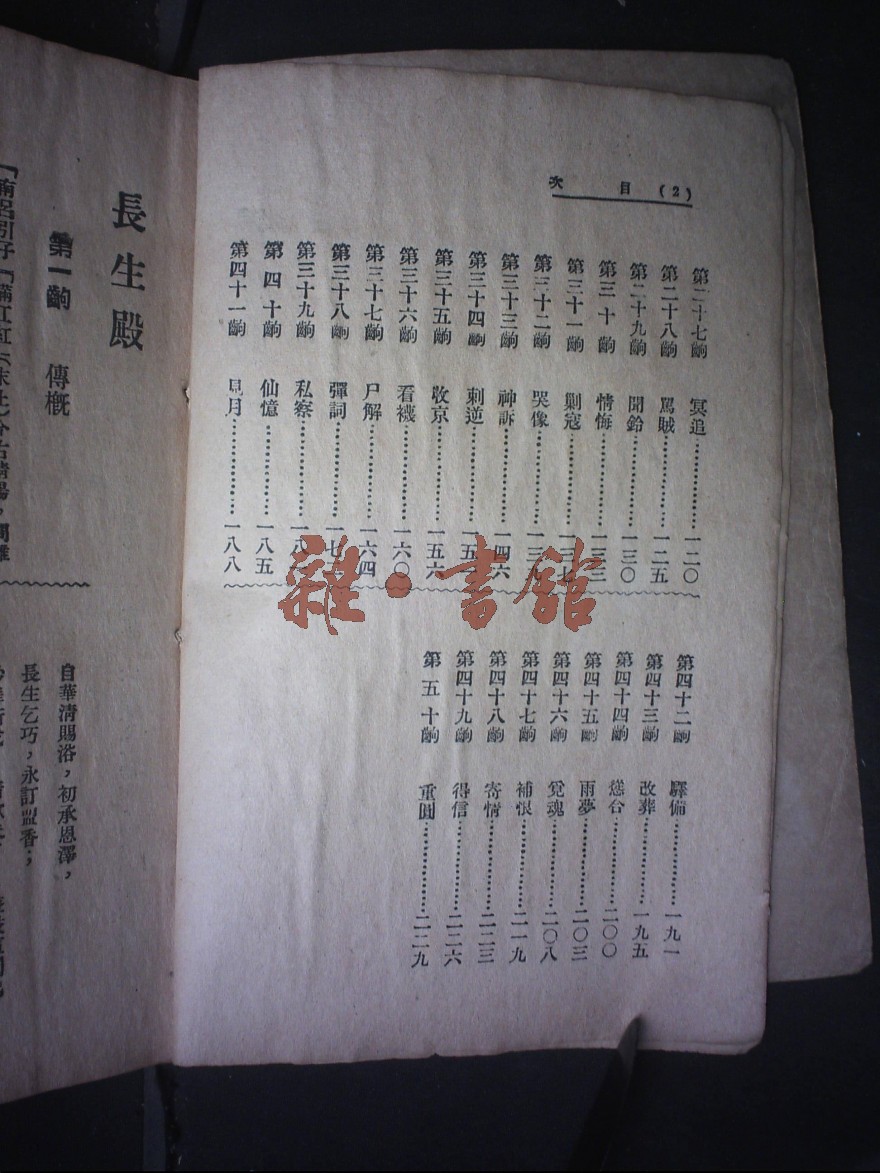 (2) 目次
第二十七齣 冥追………………一二〇
第二十八齣 罵賊………………一二五
第二十九齣 聞鈴………………一三〇
第三十齣 情悔………………一三三
第三十一齣 剿寇………………一三七
第三十二齣 哭像………………一三
第三十三齣 神訴………………一四六
第三十四齣 刺逆………………一五
第三十五齣 收京………………一五六
第三十六齣 看襪………………一六〇
第三十七齣 尸解………………一六四
第三十八齣 彈詞………………一七
第三十九齣 私祭………………一八
第四十齣 仙憶………………一八五
第四十一齣 見月………………一八八
第四十二齣 驛備………………一九一
第四十三齣 改葬………………一九五
第四十四齣 慫合………………二〇〇
第四十五齣 雨夢………………二〇三
第四十六齣 覓魂………………二〇八
第四十七齣 補恨………………二一九
第四十八齣 寄情………………二二三
第四十九齣 得信………………二二六
第五十齣 重圓………………二二九
雜·書館
長生殿
第一齣 傳概
自華清賜浴,初承恩澤,
長生乞巧,永訂盟香;